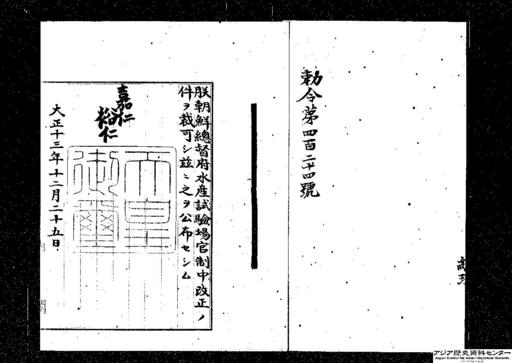 勅令第四百二十四號
朕朝鮮總督府水産試驗場官制中改正ノ
件ヲ裁可シ茲ニ之ヲ公布セシム
嘉仁
裕仁
天皇御璽
大正十三年十二月二十五日
アジア歴史資料センター
Japan Center for Asian Historical Records